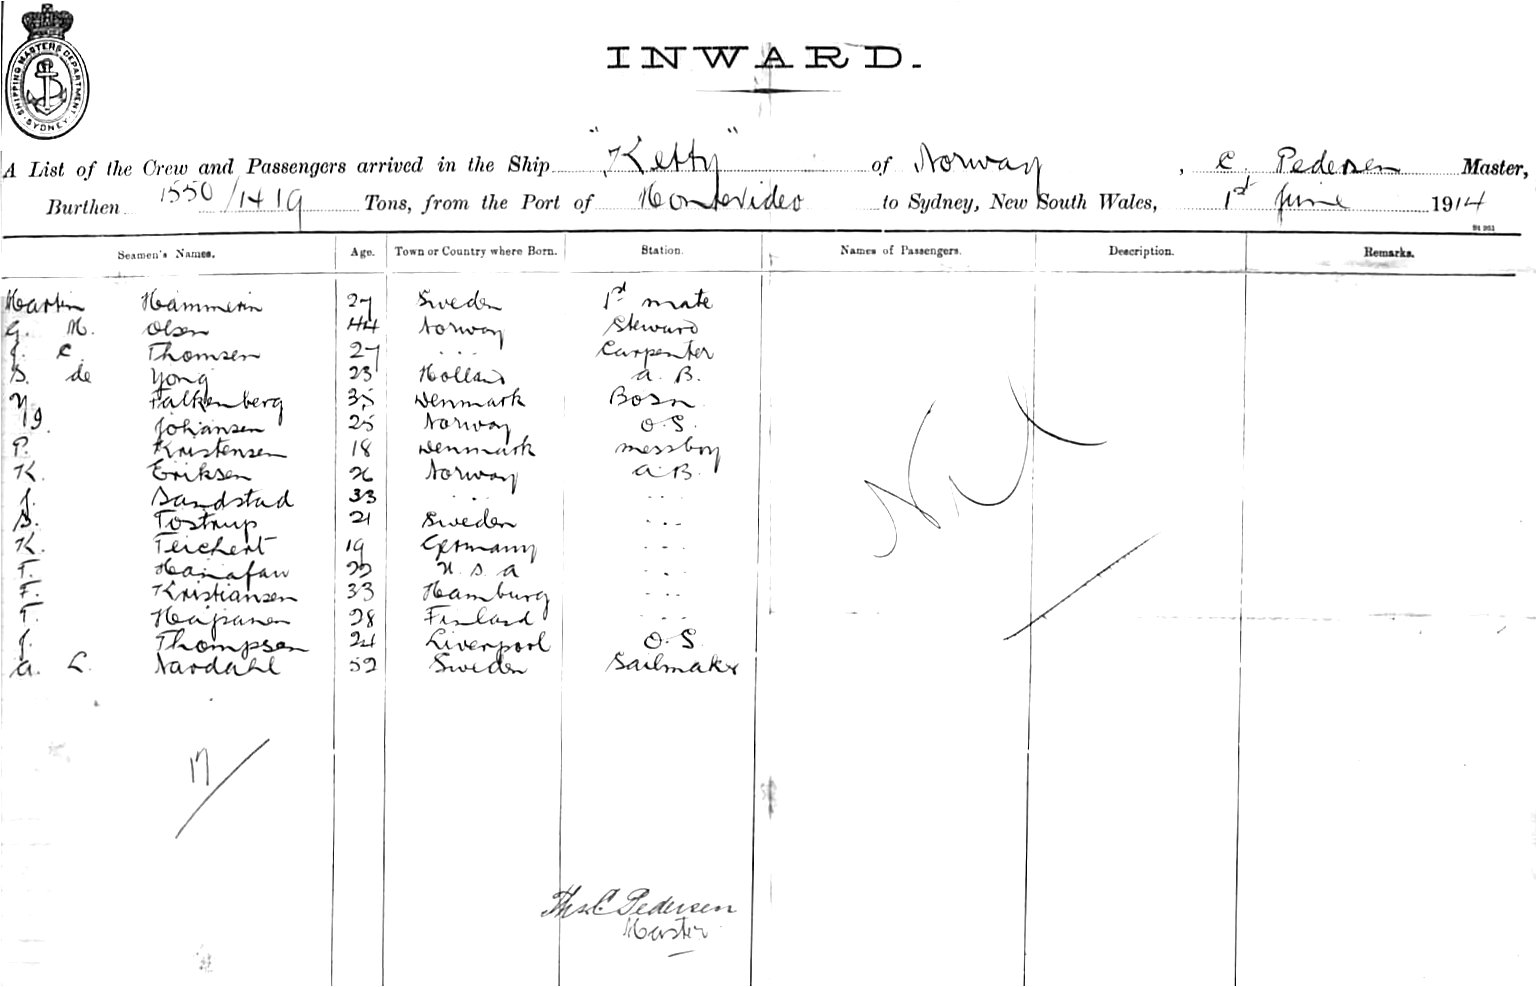 SHIPPING MASTERS DEPARTMENT SYDNEY
INWARD.
A List of the Crew and Passengers arrived in the Ship "Ketty" of Norway, C. Pedersen Master,
Burthen 1550/1419 Tons, from the Port of Montevideo to Sydney, New South Wales, 1st June 1914
Seamen's Names. Age. Town or Country where Born. Station. Names of Passengers. Description. Remarks.
Martin Hammerin 27 Sweden 1st mate
G. M. Olsen 44 Norway Steward
J. C. Thomsen 27 ... Carpenter
S. de Yong 23 Holland A. B.
Falkenberg 35 Denmark Bosn
Johansen 25 Norway O.S.
P. Kristensen 18 Denmark messboy
K. Eriksen 26 Norway A.B.
J. Sandstad 33 ... ...
S. Tostrup 21 Sweden ...
K. Teichert 19 Germany ...
T. 22 U.S.A ...
F. Kristiansen 33 Hamburg ...
T. 28 Finland ...
J. Thompsen 24 Liverpool O.S.
A. L. Nardahl 52 Sweden Sailmaker
Nil
17
Ths C. Pedersen
Master